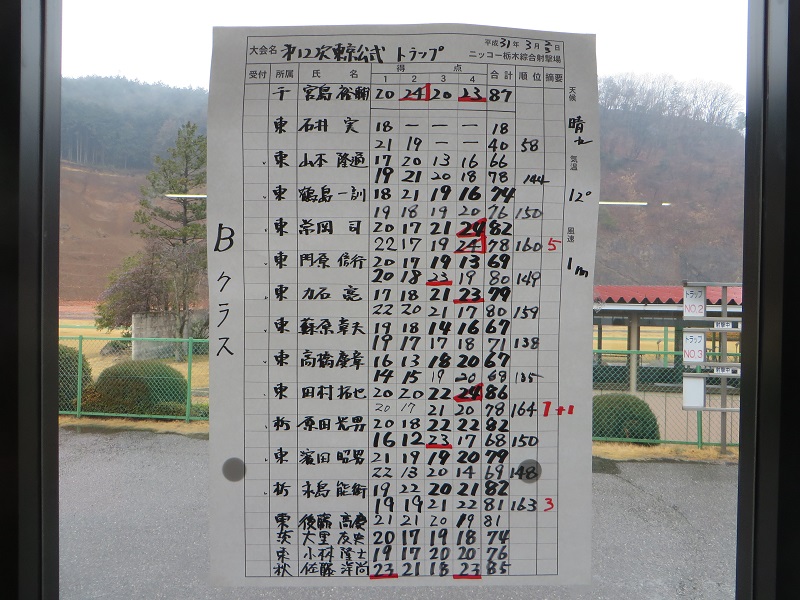 大会名 第12次東京公式 トラップ
平成31年3月23日
ニッコー栃木綜合射撃場
受付 所属 氏 名 得 点 合計 順位 摘要
1 2 3 4
千 宮島 裕輔 20 24 20 23 87
東 石井 実 18 — — — 18
21 19 — — 40 58
東 山本 隆通 17 20 13 16 66
19 21 20 18 78 144
東 鶴島 一訓 18 21 19 16 74
19 18 19 20 76 150
東 岡 司 20 17 21 24 82
22 17 19 24 78 160 5
東 門原 信行 20 17 19 13 69
20 18 23 19 80 149
東 力石 亮 17 18 21 23 79
22 20 21 17 80 159
東 藤原 幸夫 19 18 14 16 67
19 17 17 18 71 138
東 高橋 慶章 16 13 18 20 67
14 15 19 20 68 135
東 田村 拓也 20 20 22 24 86
20 17 21 20 78 164 1+1
栃 原田 光男 20 18 22 22 82
16 12 23 17 68 150
東 濱田 昭男 21 19 19 20 79
22 13 20 14 69 148
栃 木島 能術 19 22 20 21 82
19 19 21 22 81 163 3
東 後藤 高慶 21 21 20 19 81
茨 大里 友史 20 17 19 18 74
東 小林 隆士 19 17 20 20 76
秋 佐藤 洋尚 23 21 18 23 85
Bクラス
天候
晴れ
気温
12°
風速
1m
トラップ
NO.2
射撃中
トラップ
NO.3
射撃中